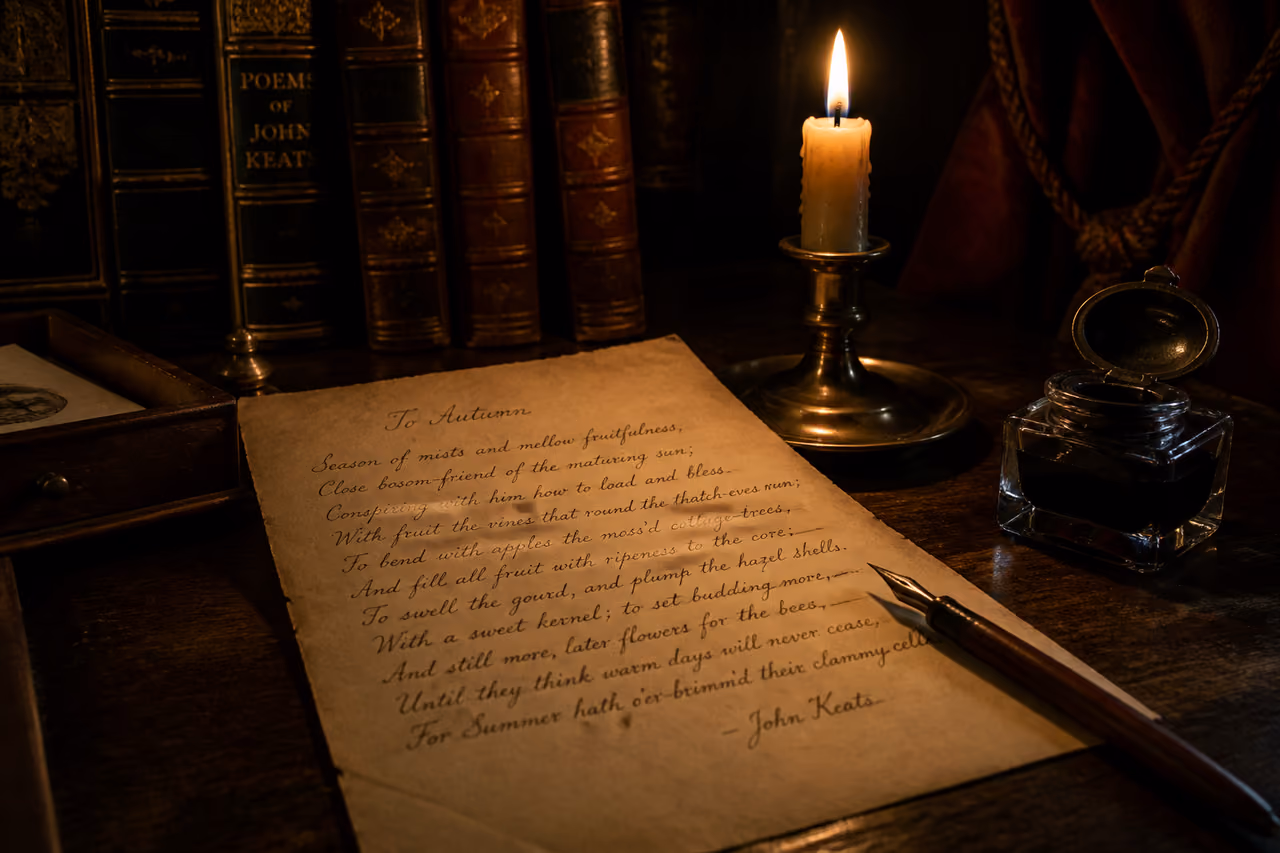 POEMS
OF
JOHN
KEATS
To Autumn
Season of mists and mellow fruitfulness,
Close bosom-friend of the maturing sun;
Conspiring with him how to load and bless
With fruit the vines that round the thatch-eves run;
To bend with apples the moss'd cottage-trees,
And fill all fruit with ripeness to the core;
To swell the gourd, and plump the hazel shells.
With a sweet kernel; to set budding more,
And still more, later flowers for the bees,
Until they think warm days will never cease,
For Summer hath o'er-brimm'd their clammy cells
– John Keats